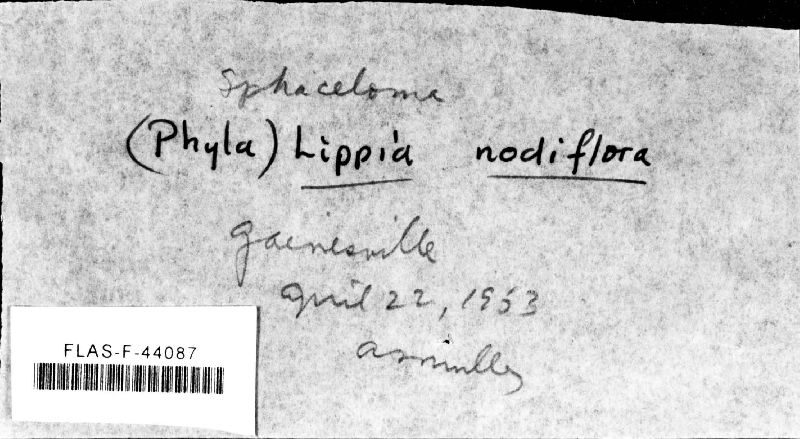 Sphaceloma
(Phyla) Lippia nodiflora
Gainesville
April 22, 1953
FLAS-F-44087